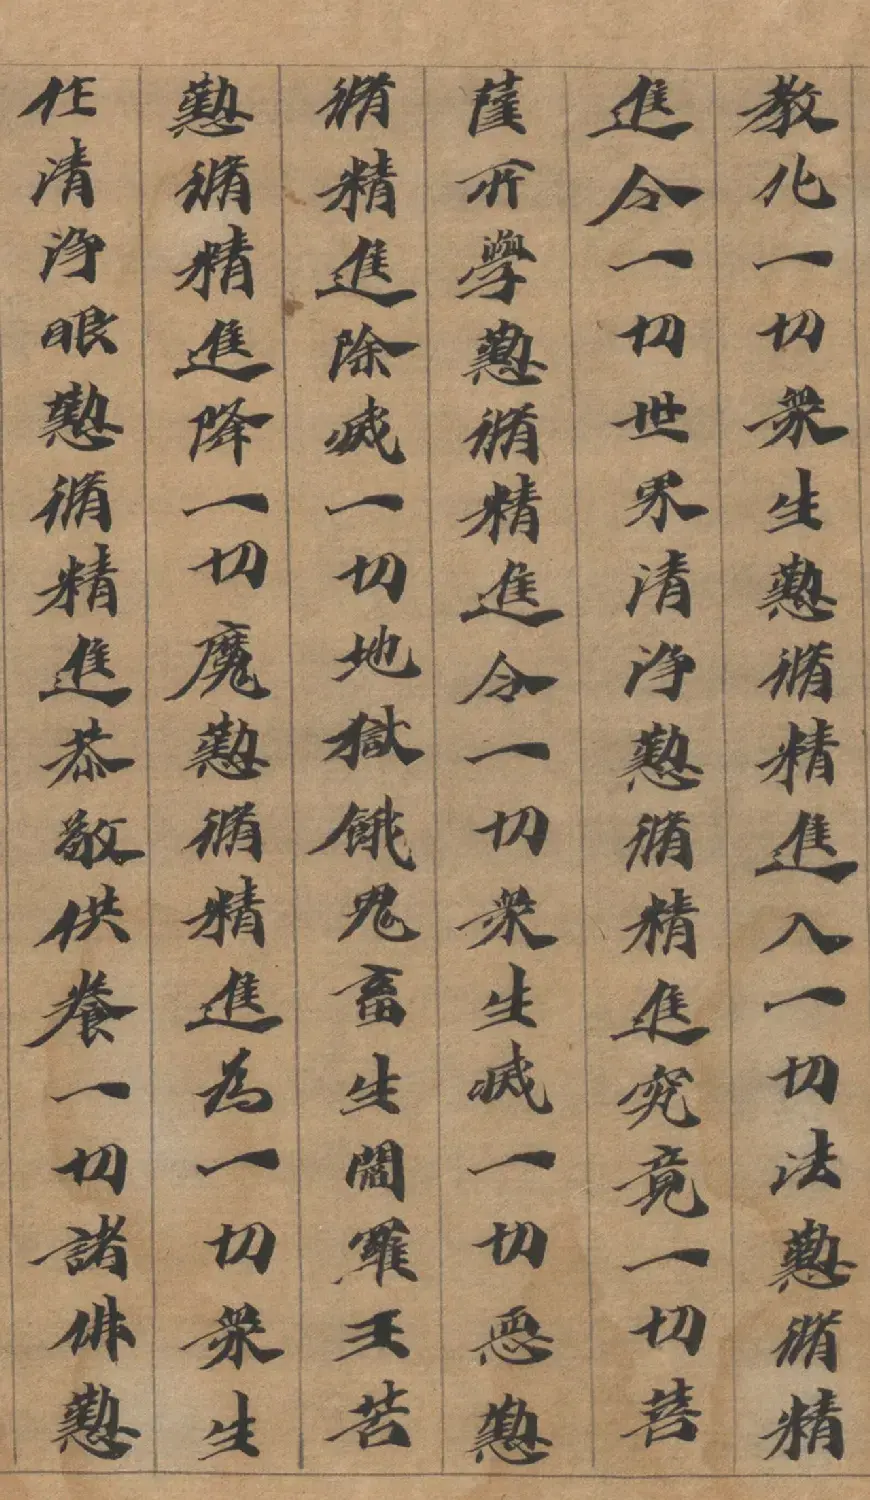 教化一切衆生懃脩精進入一切法懃脩精
進令一切世界清淨懃脩精進究竟一切菩
薩所學懃脩精進令一切衆生滅一切惡懃
脩精進除滅一切地獄餓鬼畜生閻羅王苦
懃脩精進降一切魔懃脩精進為一切衆生
作清淨眼懃脩精進恭敬供養一切諸佛懃